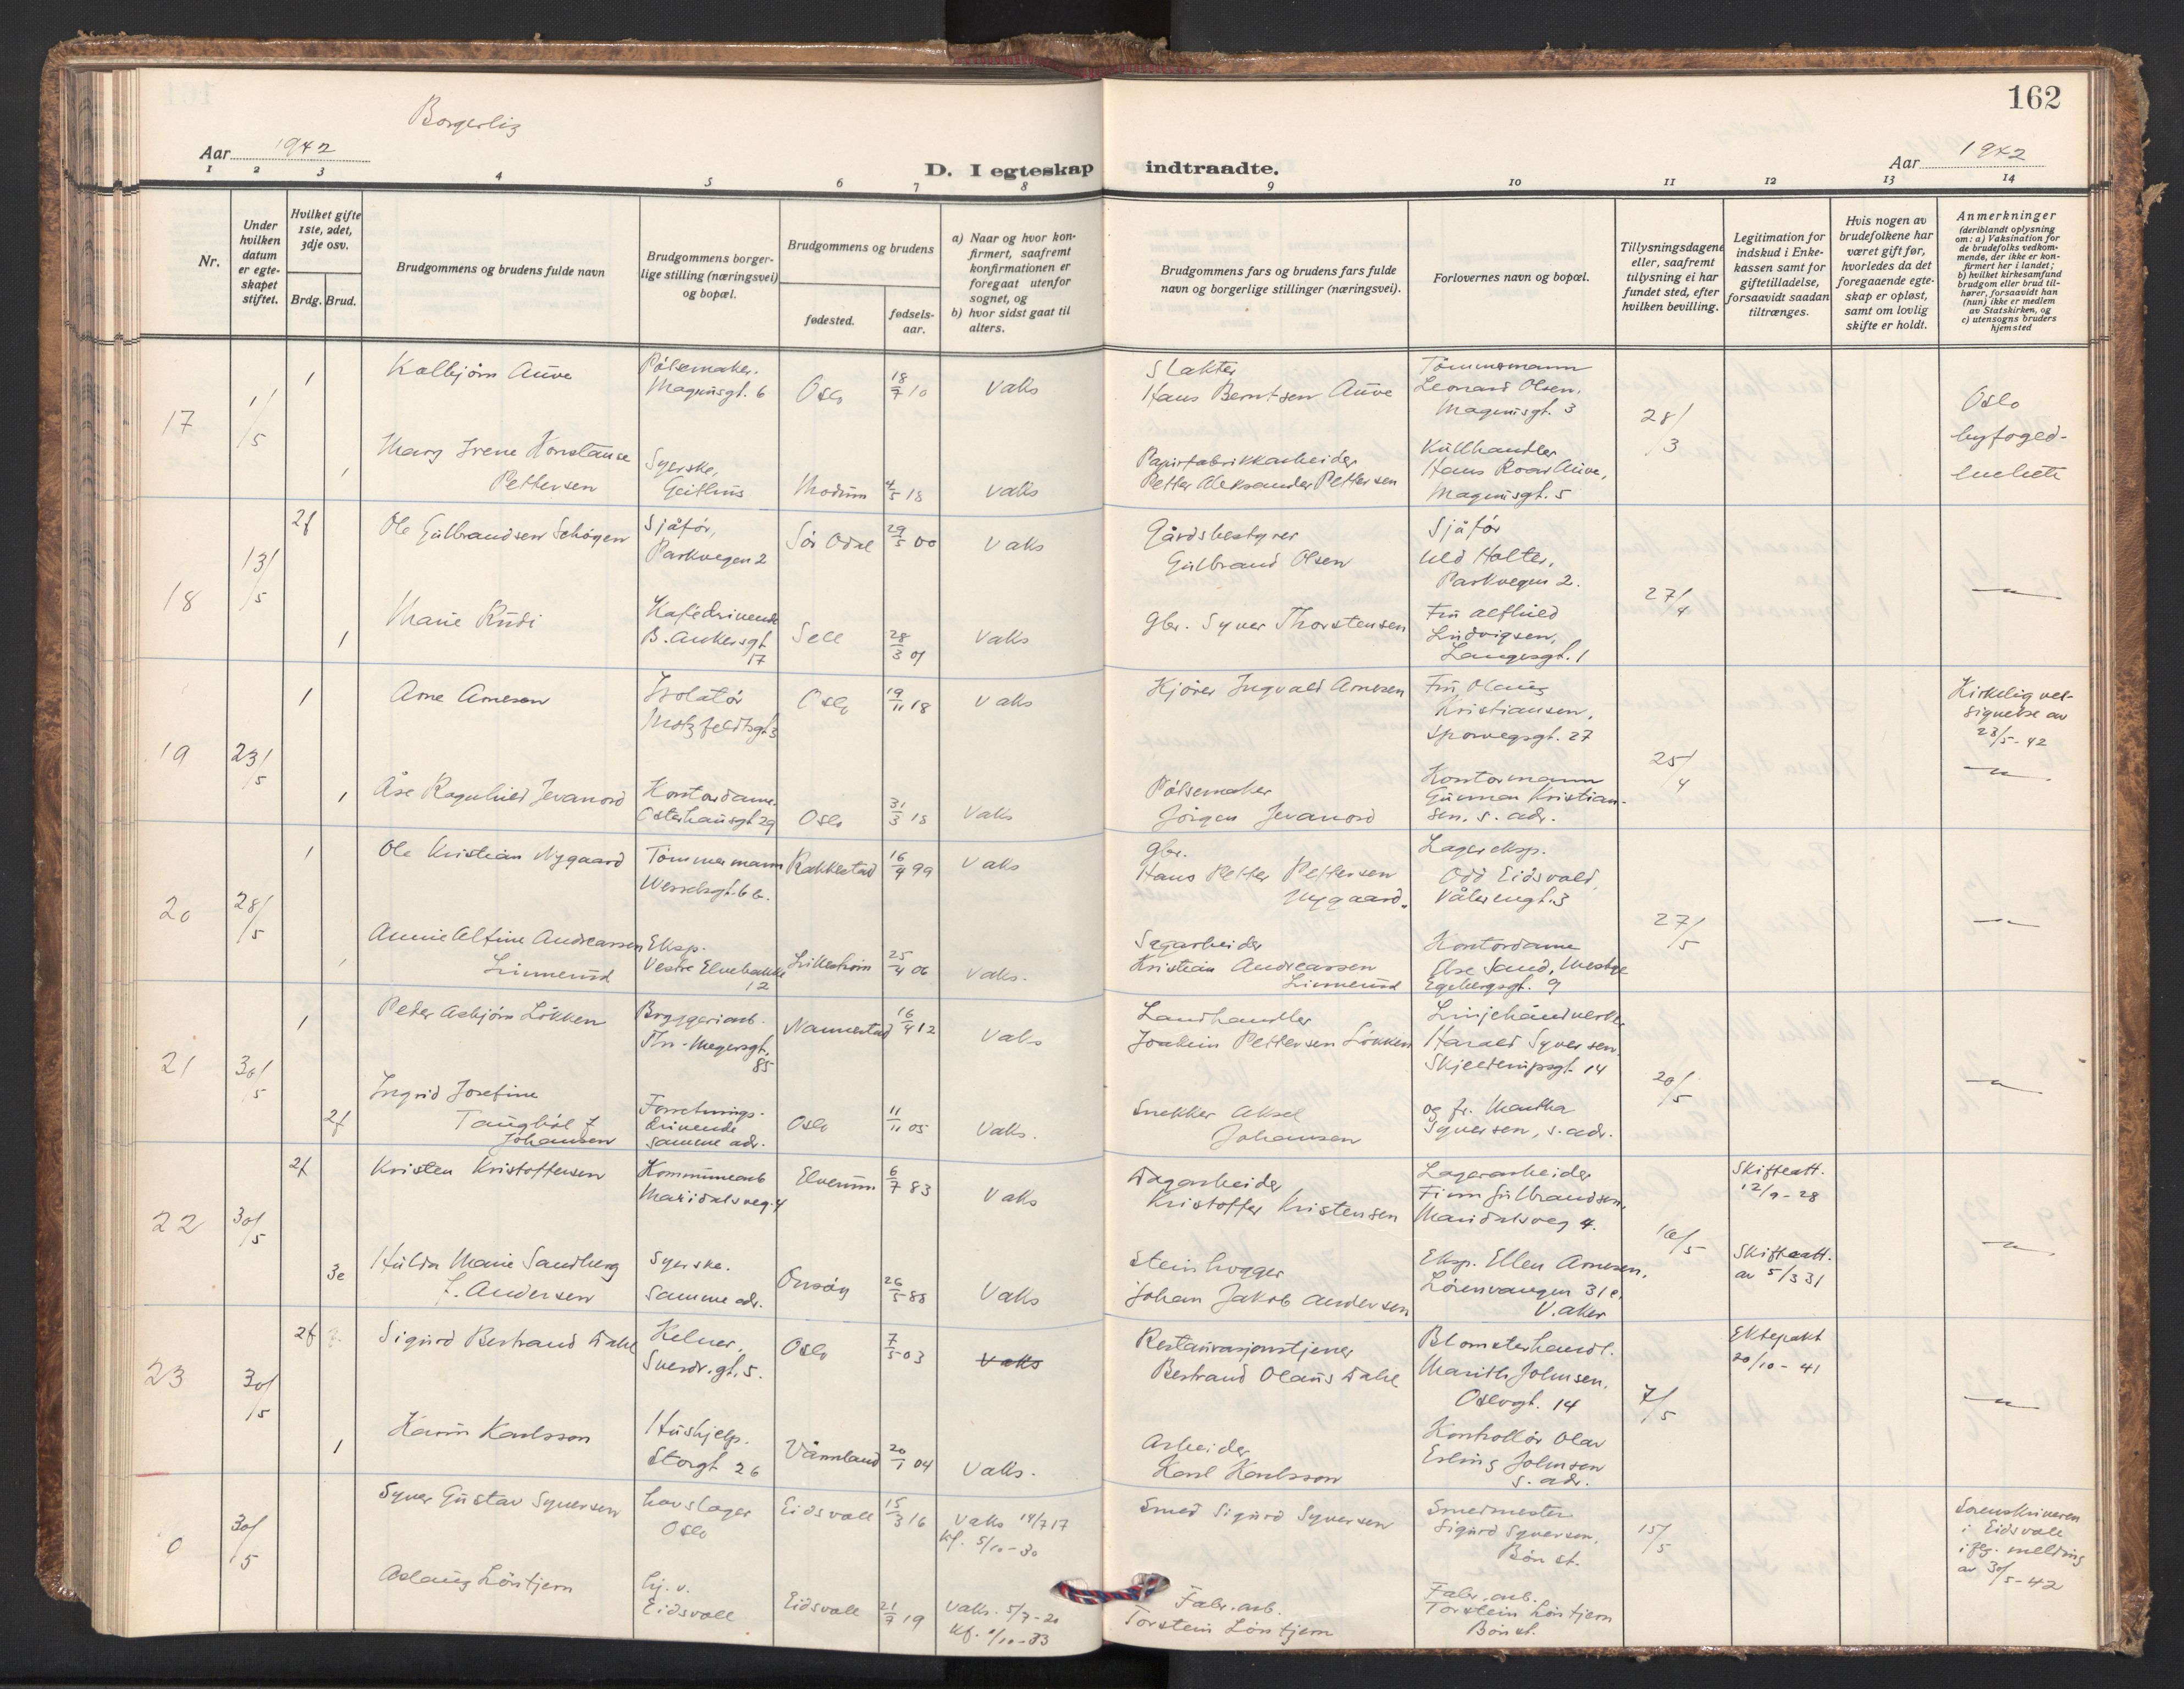 162
Borgerlig
Aar 1942
D. I egteskap indtraadte.
Aar 1942
1 2 3 4 5 6 7 8 9 10 11 12 13 14
Nr.
Under hvilken datum er egte-skapet stiftet.
Hvilket gifte 1ste, 2det, 3dje osv.
Brdg. Brud.
Brudgommens og brudens fulde navn
Brudgommens borger-lige stilling (næringsvei) og bopæl.
Brudgommens og brudens
fødested.
fødsels-aar.
a) Naar og hvor kon-firmert, saafremt konfirmationen er foregaat utenfor sognet, og
b) hvor sidst gaat til alters.
Brudgommens fars og brudens fars fulde navn og borgerlige stillinger (næringsvei).
Forlovernes navn og bopæl.
Tillysningsdagene eller, saafremt tillysning ei har fundet sted, efter hvilken bevilling.
Legitimation for indskud i Enke-kassen samt for giftetilladelse, forsaavidt saadan tiltrænges.
Hvis nogen av brudefolkene har været gift før, hvorledes da det foregaaende egte-skap er opløst, samt om lovlig skifte er holdt.
Anmerkninger
(deriblandt oplysning om: a) Vaksination for de brudefolks vedkom-mende, der ikke er kon-firmert her i landet; b) hvilket kirkesamfund brudgom eller brud til-hører, forsaavidt han (hun) ikke er medlem av Statskirken, og c) utensogns bruders hjemsted
17
1/5
1
Kolbjørn Auve
Pølsemaker.
Magnusgt. 6
Oslo
18/7 10
vaks
Slakter
Hans Berntsen Auve
Tømmermann
Leonard Olsen,
Magnusgt. 3
28/3
Oslo
byfoged-
embete
1
Mary Irene Konstanse
Pettersen
Syerske,
Geithus
Modum
4/5 18
vaks
Papirfabrikkarbeider
Petter Aleksander Pettersen
Kullhandler
Hans Roar Auve,
Magnusgt. 5
18
13/5
2f
Ole Gulbrandsen Schøyen
Sjåfør,
Parkvegen 2
Sør Odal
29/5 00
vaks
Gårdsbestyrer
Gulbrand Olsen
Sjåfør
Uld Holter,
Parkvegen 2.
27/4
—"—
1
Marie Rudi
Kafédrivende
B. Ankersgt
17
Sell
28/3 01
vaks
Gbr. Syver Thorstensen
Fru Alfhild
Ludvigsen,
Langesgt. 1
19
23/5
1
Arne Arnesen
Isolatør
Motzfeldtsgt 3
Oslo
19/11 18
vaks
Kjører Ingvald Arnesen
Fru Olaug
Kristiansen,
Sporvegsgt. 27
25/4
Kirkelig vel-
signelse av
23/5-42
—"—
1
Åse Ragnhild Jevanord
Kontordame
Osterhausgt 29
Oslo
31/3 18
vaks
Pølsemaker
Jørgen Jevanord
Kontormann
Gunnar Kristian-
sen. s. adr.
20
28/5
1
Ole Kristian Nygaard
Tømmermann
Wesselsgt. 6 b.
Rakkestad
16/4 99
vaks
Gbr.
Hans Petter Pettersen
Nygaard.
Lagereksp.
Odd Eidsvold,
Vålerengt. 3
27/5
—"—
1
Annie Alfine Andreassen
Linnerud
Eksp.
Vestre Elvebakke
12
Lillestrøm
25/4 06
vaks.
Sagarbeider
Kristian Andreassen
Linnerud
Kontordame
Else Sand, Westye
Egebergsgt. 9
21
30/5
1
Peder Asbjørn Løkken
Bryggeriarb.
Thv. Meyersgt.
85
Nannestad
16/4 12
vaks
Landhandler
Joakim Pettersen Løkken
Linjehåndverker
Harald Syversen
Skjeldrupsgt. 14
20/5
—"—
2f
Ingrid Josefine
Taugbøl f
Johansen
Forretnings-
drivende
samme adr.
Oslo
11/11 05
vaks.
Snekker Aksel
Johansen
og fr. Martha
Syversen, s. adr.
22
30/5
2f
Kristen Kristoffersen
Kommunearb
Maridalsveg. 4
Elverum
6/7 83
vaks
Dagarbeider
Kristoffer Kristensen
Lagerarbeider
Finn Gulbrandsen,
Maridalsveg 4.
16/5
Skifteatt.
12/9-28
—"—
3e
Hulda Marie Sandberg
f. Andersen
Syerske.
Samme adr.
Onsøy
26/5 88
vaks
Steinhogger
Johan Jakob Andersen
Eksp. Ellen Arnesen,
Lørenvangen 31 e.
V. Aker
Skifteatt.
av 5/3 31
23
30/5
2f
Sigurd Bertrand Dahl
Kelner,
Sverdr.gt. 5.
Oslo
7/5 03
vaks
Restaurasjonstjener
Bertrand Olaus Dahl
Blomsterhandl.
Marith Johnsen,
Oslogt. 14
7/5
Ektepakt
20/10-41
—"—
1
Karin Karlsson
Hushjelp.
Storgt 26
Värmland
20/1 04
vaks.
Arbeider
Karl Karlsson
Kontrollør Olav
Erling Johnsen
s. adr.
0
30/5
Syver Gustav Syversen
hovslager
Oslo
Eidsvoll
15/3 16
vaks 14/7 17
Kf. 5/10-30
Smed Sigurd Syversen
Smedmester
Sigurd Syversen,
Bøn st.
15/5
Sorenskriveren
i Eidsvoll
ifg. melding
av 30/5-42
Aslaug Løntjern
hj. v.
Eidsvoll
Eidsvoll
21/7 19
vaks. 5/7-20
Kf. 1/10-33
Fabr. arb.
Torstein Løntjern
Fabr. arb.
Torstein Løntjern
Bøn st.